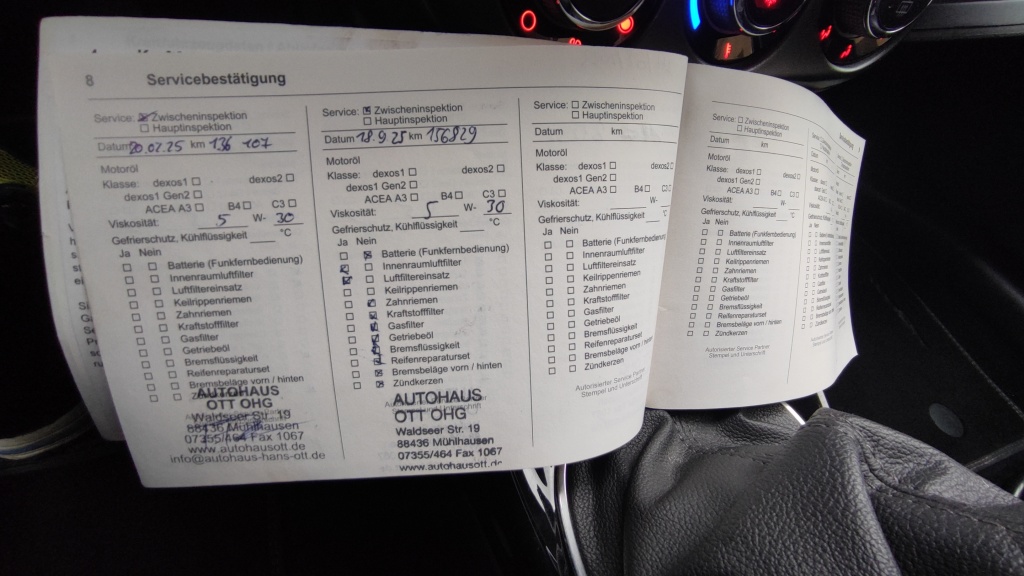 8 Servicebestätigung
Service: ☒ Zwischeninspektion
☐ Hauptinspektion
Datum 20.02.25 km 136 107
Motoröl
Klasse: dexos1 ☐ dexos2 ☐
dexos1 Gen2 ☐
ACEA A3 ☐ B4 ☐ C3 ☐
Viskosität: 5 W- 30
Gefrierschutz, Kühlflüssigkeit ____ °C
Ja Nein
☐ ☐ Batterie (Funkfernbedienung)
☐ ☐ Innenraumluftfilter
☐ ☐ Luftfiltereinsatz
☐ ☐ Keilrippenriemen
☐ ☐ Zahnriemen
☐ ☐ Kraftstofffilter
☐ ☐ Gasfilter
☐ ☐ Getriebeöl
☐ ☐ Bremsflüssigkeit
☐ ☐ Reifenreparaturset
☐ ☐ Bremsbeläge vorn / hinten
AUTOHAUS
OTT OHG
Waldseer Str. 19
88436 Mühlhausen
07355/464 Fax 1067
www.autohausott.de
info@autohaus-hans-ott.de
Service: ☒ Zwischeninspektion
☐ Hauptinspektion
Datum 18.9 25 km 156829
Motoröl
Klasse: dexos1 ☐ dexos2 ☐
dexos1 Gen2 ☐
ACEA A3 ☐ B4 ☐ C3 ☐
Viskosität: 5 W- 30
Gefrierschutz, Kühlflüssigkeit ____ °C
Ja Nein
Batterie (Funkfernbedienung)
Innenraumluftfilter
Luftfiltereinsatz
Keilrippenriemen
Zahnriemen
Kraftstofffilter
Gasfilter
Getriebeöl
Bremsflüssigkeit
Reifenreparaturset
Bremsbeläge vorn / hinten
Zündkerzen
AUTOHAUS
OTT OHG
Waldseer Str. 19
88436 Mühlhausen
07355/464 Fax 1067
www.autohausott.de
Service: ☐ Zwischeninspektion
☐ Hauptinspektion
Datum km
Motoröl
Klasse: dexos1 ☐ dexos2 ☐
dexos1 Gen2 ☐
ACEA A3 ☐ B4 ☐ C3 ☐
Viskosität: W-
Gefrierschutz, Kühlflüssigkeit
Ja Nein
☐ ☐ Batterie (Funkfernbedienung)
☐ ☐ Innenraumluftfilter
☐ ☐ Luftfiltereinsatz
☐ ☐ Keilrippenriemen
☐ ☐ Zahnriemen
☐ ☐ Kraftstofffilter
☐ ☐ Gasfilter
☐ ☐ Getriebeöl
☐ ☐ Bremsflüssigkeit
☐ ☐ Reifenreparaturset
☐ ☐ Bremsbeläge vorn / hinten
☐ ☐ Zündkerzen
Autorisierter Service Partner
Stempel und Unterschrift
Service: ☐ Zwischeninspektion
☐ Hauptinspektion
Datum km
Motoröl
Klasse: dexos1 ☐ dexos2 ☐
dexos1 Gen2 ☐
ACEA A3 ☐ B4 ☐ C3 ☐
Viskosität: W-
Gefrierschutz, Kühlflüssigkeit °C
Ja Nein
☐ ☐ Batterie (Funkfernbedienung)
☐ ☐ Innenraumluftfilter
☐ ☐ Luftfiltereinsatz
☐ ☐ Keilrippenriemen
☐ ☐ Zahnriemen
☐ ☐ Kraftstofffilter
☐ ☐ Gasfilter
☐ ☐ Getriebeöl
☐ ☐ Bremsflüssigkeit
☐ ☐ Reifenreparaturset
☐ ☐ Bremsbeläge vorn / hinten
☐ ☐ Zündkerzen
Autorisierter Service Partner
Stempel und Unterschrift